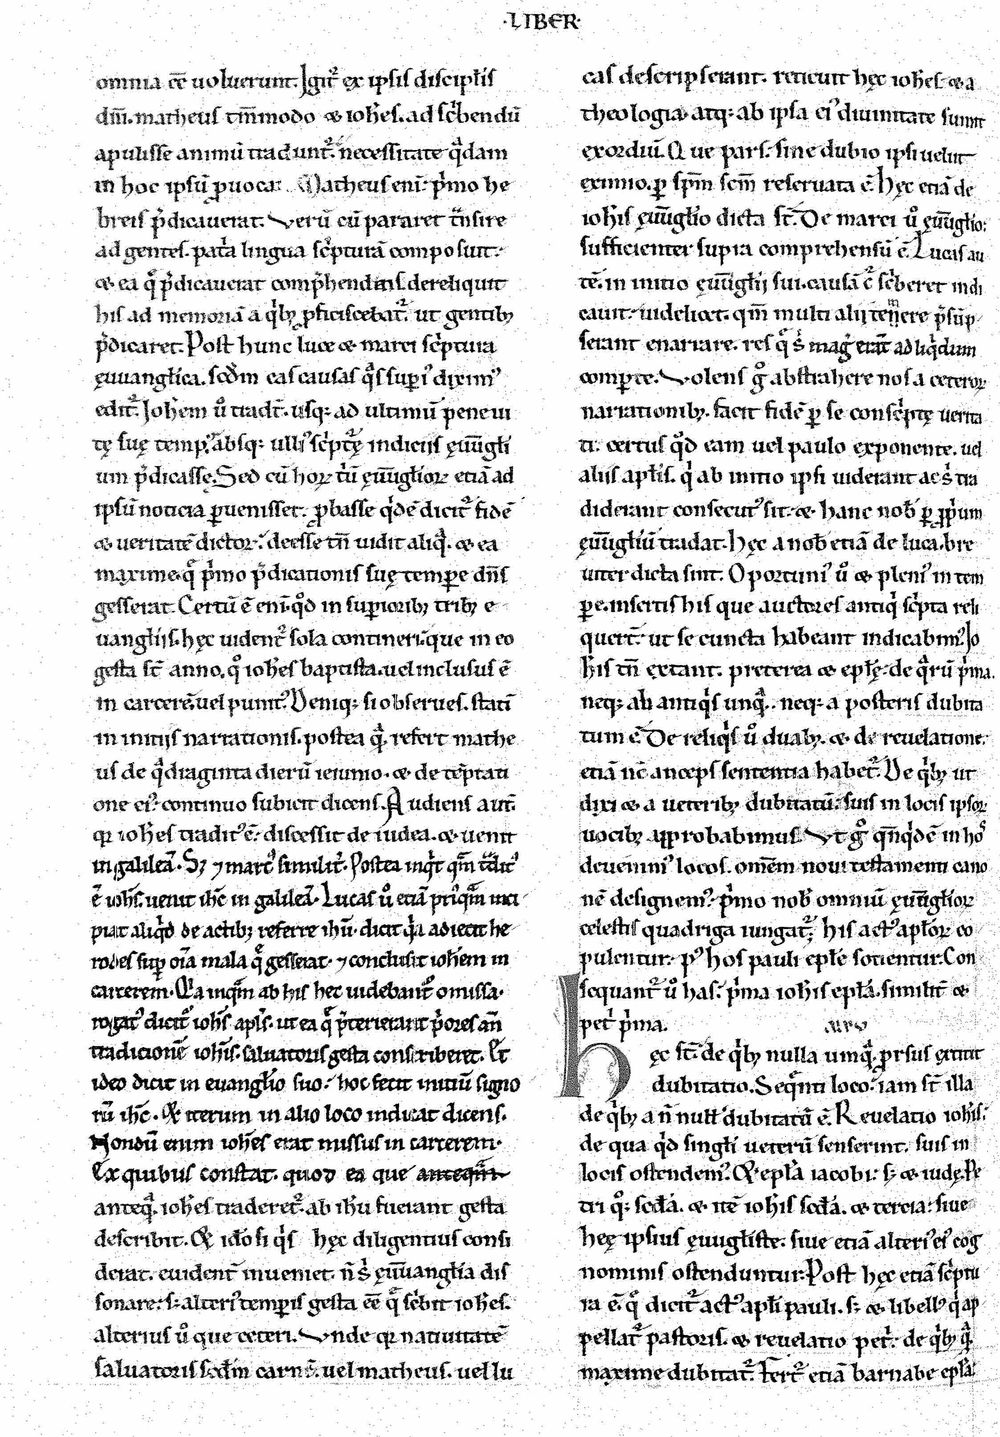 ·LIBER·
omnia ēē uoluerunt. Igit᷑ ex ipsis discipl̄is
dn̄i. matheus tm̄modo & ioh̄es. ad sc̄bendū
apulisse animū tradunt᷑. necessitate q̄dam
in hoc ipsū ꝓuocati. Matheus eni᷑ p̄mo he
breis p̄dicauerat. Verū cū pararet t̄nsire
ad gentes. pat̄a lingua sc̄pturā composuit.
& ea q̄ p̄dicauerat comp̄hendens. dereliquit
his ad memoriā a q̄bꝫ ꝓficiscebat᷑. ut gentibꝫ
p̄dicaret. Post hunc luce & marci sc̄ptura
ęuuanglica. scd̄m eas causas q̄s sup̄i᷒ dixim᷒
edit᷑. Ioh̄em u̾ tradt̄. usqꝫ ad ultimū pene ui
tę suę tempꝰ. absqꝫ ulli᷒ sc̄ptę indiciis ęuūgl̄i
um p̄dicasse. Sed cū hoꝝ t̄ū ęuūgl̄ioꝝ etiā ad
ipsū noticia ꝑuenisset. ꝓbasse q̄dē dicit᷑ fidē
& ueritatē dictoꝝ. deesse tn̄ uidit aliq̄. & ea
maxime q̄ p̄mo p̄dicationis suę tempe dn̄s
gesserat. Certū ē eni᷑. qd̄ in supioribꝫ tribꝫ e
uangl̄iis. hęc uident᷑ sola contineri. que in eo
gesta st̄ anno. q̊ ioh̄es baptista. uel inclusus ē
in carcerē. uel punit᷒. Deniqꝫ si obserues. stati
in initijs narrationis. postea q̄. refert mathe
us de q̄draginta dierū ieiunio. & de tēptati
one ei᷒. continuo subicit dicens. Audiens aut̄.
qꝛ ioh̄es tradit᷒ ē. discessit de iudea. & uenit
in galileā. Sꝫ ⁊ marc᷒ similit̄. Postea inq̄t qm̄ t̄dit᷒
ē ioh̄s. uenit ih̄c in galileā. Lucas u̾ etiā priꝰqm̄ inci
piat aliqd̄ de actibꝫ referre ih̄u. dicit q̄a adiecit he
rodes suꝑ oīa mala q̄ gesserat. ⁊ conclusit ioh̄em in
carcerem. Q̄a inqm̄ ab his hec uidebant᷑ omissa.
rogat᷒ dicit᷑ ioh̄s apl̄s. ut ea q̄ p̄terierant p̄ores an̄
tradicionē ioh̄is. saluatoris gesta conscriberet. Et
ideo dicit in euangl̄io suo. hoc fecit initiū signo
rū ih̄c. & iterum in alio loco indicat dicens.
Nondū enim ioh̄es erat missus in carcerem.
Ex quibus constat. quod ea que anteqm̄
anteq̄. ioh̄es traderet᷑. ab ih̄u fuerant gesta
describit. & idō si q̄s hęc diligentius consi
derat. euident̄ inueniet. n̄ s̄ ęuūangl̄ia dis
sonare. sꝫ alteri᷒ temꝑis gesta eē q̄ sc̄bit ioh̄es.
alterius u̾ que ceteri. Vnde qꝛ natiuitatē
saluatoris scd̄m carnē. uel matheus. uel lu
cas descripserant. reticuit hęc ioh̄es. & a
theologia. atqꝫ ab ipsa ei᷒ diuinitate sumit
exordiū. Que pars. sine dubio ipsi uelut
eximio. ꝑ sp̄m sc̄m reseruata ē. Hęc etiā de
ioh̄is ęuūgl̄io dicta st̄. De marci u̾ ęuūgl̄io.
sufficienter supra comprehensū ē. Lucas au
tē. in initio ęuūgl̄ij sui. causā c̄ sc̄beret indi
cauit. uidelicet. qm̄ multi alij temere p̄sūp
serant enarrare. res q̄s s̄ mag᷒ erāt ad liq̄dum
comperte. Volens g̊ abstrahere nos a ceteroꝝ
narrationibꝫ. facit fidē ꝑ se consc̄ptę uerita
ti. certus qd̄ eam uel paulo exponente. uel
aliis apl̄is. q̄ ab initio ipsi uiderant ac s̄ tra
diderant consecut᷒ sit. & hanc nob̄ ꝑ ꝓpium
ęuūgl̄iū tradat. Hęc a nob̄ etiā de luca. bre
uiter dicta sint. Oportuni᷒ u̾ & pleni᷒ in tem
ꝑe. insertis his que auctores antiq̄ sc̄pta reli
quert̄. ut se cuncta habeant indicabim᷒. Io
h̄is tn̄ extant. preterea & epl̄ę. de q̄rū p̄ma.
neqꝫ ab antiq̄s unq̄. neqꝫ a posteris dubita
tum ē. De reliq̄s u̾ duabꝫ. & de reuelatione.
etiā nc̄ anceps sententia habet᷑. De q̄bꝫ ut
dixi & a ueteribꝫ dubitatū. suis in locis ipsoꝝ
uocibꝫ approbabimus. Vt g̊ qn̄qdē in hos
deuenim᷒ locos. omēm noui testamenti cano
nē designem᷒. p̄mo nob̄ omniū ęuūgl̄ioꝝ
celestis quadriga iungat᷑, his act᷒ apl̄oꝝ co
pulentur. pꝰ hos pauli epl̄e sotientur. Con
sequant᷑ u̾ has. p̄ma iohis epl̄a. similit̄ &
pet̄ p̄ma.
hęc st̄. de q̄bꝫ nulla umq̄. prsus extitit
dubitatio. Seqn̄ti loco. iam st̄ illa
de q̄bꝫ a n̄ null̄ dubitatū ē. Reuelatio ioh̄is.
de qua qd̄ singl̄i ueterū senserint. suis in
locis ostendem᷒. & epl̄a iacobi. sꝫ & iudę. Pe
tri qꝫ scd̄a. & itē ioh̄is scd̄a. & tercia. siue
hęę ipsius ęuugliste. siue etiā alteri᷒ ei᷒ cog
nominis ostenduntur. Post hęc etiā sc̄ptu
ra ē. q̄ dicit᷑ act᷒ apl̄i pauli. sꝫ & libell᷒ q̄ ap
pellat᷑ pastoris. & reuelatio pet̄. de q̄bꝫ q̄
maxime dubitat᷑. Fert᷑ etiā barnabe epl̄a.